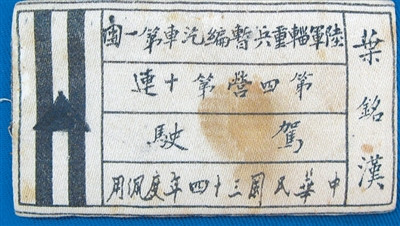 葉銘漢
陸軍輜重兵暫編汽車第一團
第四營第十連
駕駛
中華民國三十四年度佩用